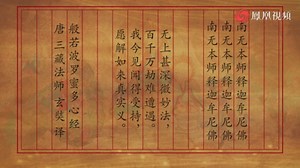 凤凰视频
南无本师释迦牟尼佛
南无本师释迦牟尼佛
南无本师释迦牟尼佛
无上甚深微妙法，
百千万劫难遭遇。
我今见闻得受持，
愿解如来真实义。
般若波罗蜜多心经
唐三藏法师玄奘译